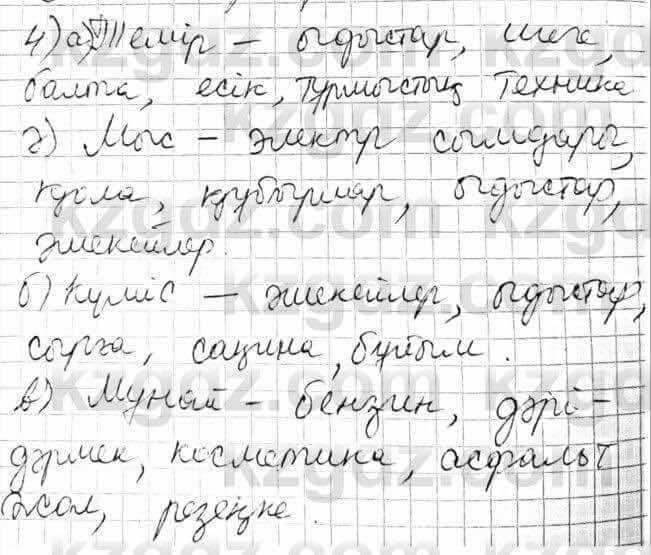 4) а) Темір – ыдыстар, шеге,
балта, есік, тұрмыстық техника
ә) Мыс – электр сымдары,
қола, құбырлар, ыдыстар,
әшекейлер.
б) Күміс – әшекейлер, ыдыстар,
сырға, сақина, бұйым.
в) Мұнай – бензин, дәрі-
дәрмек, косметика, асфальт
жол, резеңке.
kzgdz.com